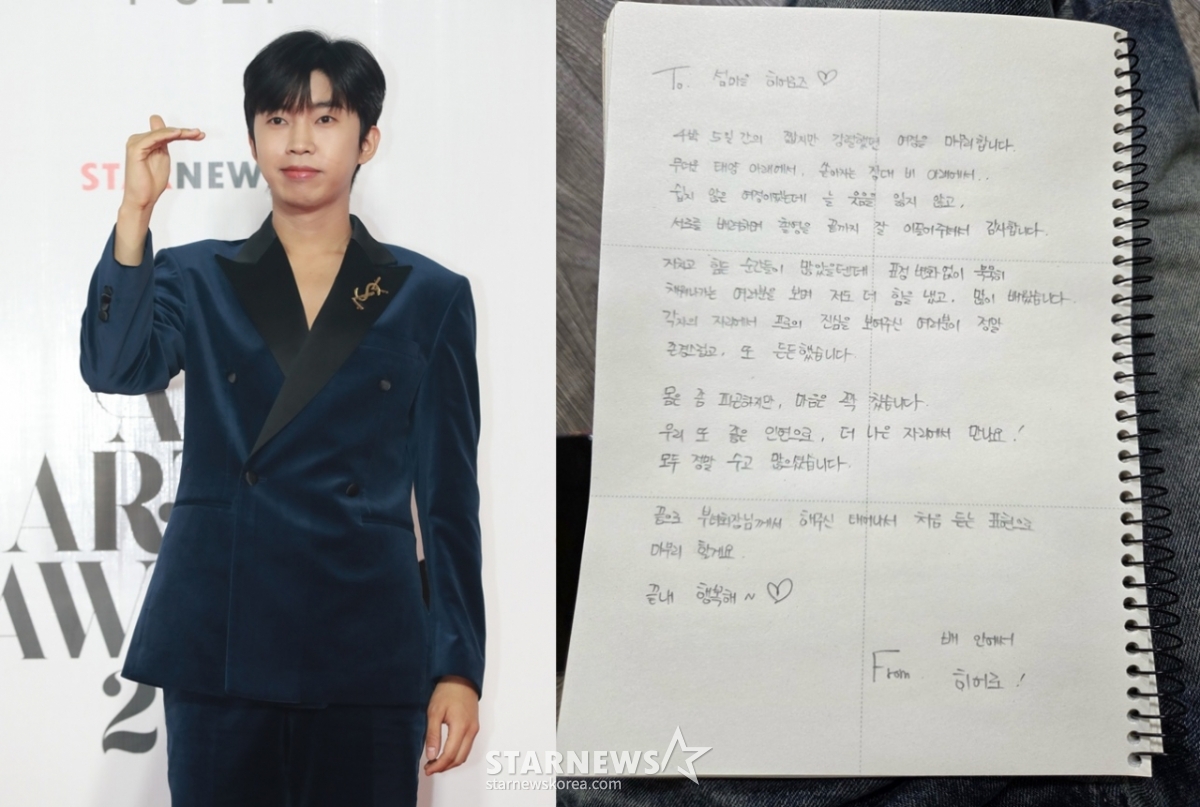 STARNEWS
ARTI
AWA
2
To. 섬마을 히어로즈 ♡
4박 5일 간의 짧지만 강렬했던 여정을 마무리합니다.
무더운 태양 아래에서, 쏟아지는 장대 비 아래에서..
쉽지 않은 여정이었는데 늘 웃음을 잃지 않고,
서로를 배려하며 촬영을 끝까지 잘 이끌어주셔서 감사합니다.
지치고 힘든 순간들이 많았을텐데 표정 변화 없이 묵묵히
채워나가는 여러분을 보며 저도 더 힘을 냈고, 많이 배웠습니다.
각자의 자리에서 프로의 진심을 보여주신 여러분이 정말
존경스럽고, 또 든든했습니다.
몸은 좀 피곤하지만, 마음은 꽉 찼습니다.
우리 또 좋은 인연으로, 더 나은 자리에서 만나요!
모두 정말 수고 많으셨습니다.
끝으로 부녀회장님께서 해주신 태어나서 처음 듣는 표현으로
마무리 할게요.
끝내 행복해~ ♡
배 안에서
From. 히어로!
STARNEWS
starnewskorea.com